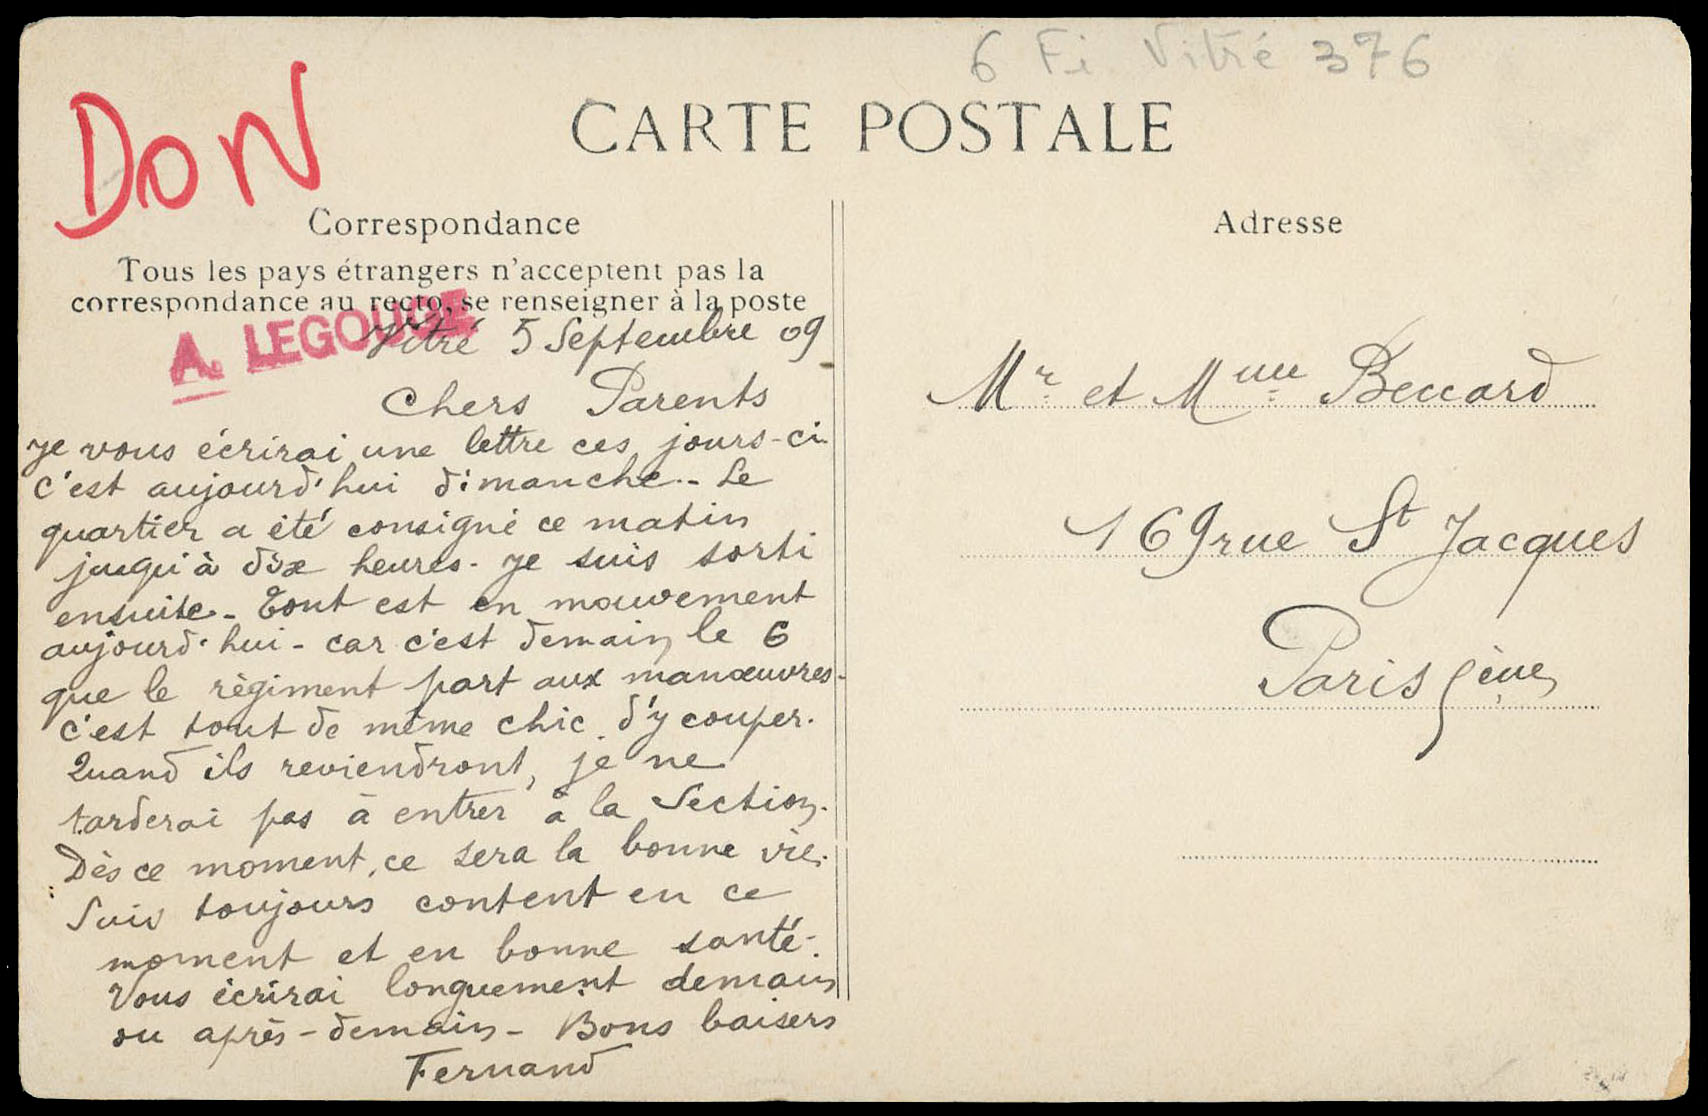 6 Fi Vitré 376
DON
CARTE POSTALE
Correspondance
Tous les pays étrangers n'acceptent pas la
correspondance au recto, se renseigner à la poste
A. LEGOUGE
Vitré 5 Septembre 09
Chers Parents
Je vous écrirai une lettre ces jours-ci
c'est aujourd'hui dimanche.. Le
quartier a été consigné ce matin
jusqu'à dix heures. Je suis sorti
ensuite - Tout est en mouvement
aujourd'hui - car c'est demain le 6
que le règiment part aux manœuvres -
c'est tout de même chic d'y couper.
Quand ils reviendront, je ne
tarderai pas à entrer à la Section.
Dès ce moment, ce sera la bonne vie.
Suis toujours content en ce
moment et en bonne santé.
Vous écrirai longuement demain
ou après-demain - Bons baisers
Fernand
Adresse
Mr et Mme Beccard
169 rue St Jacques
Paris 5ème